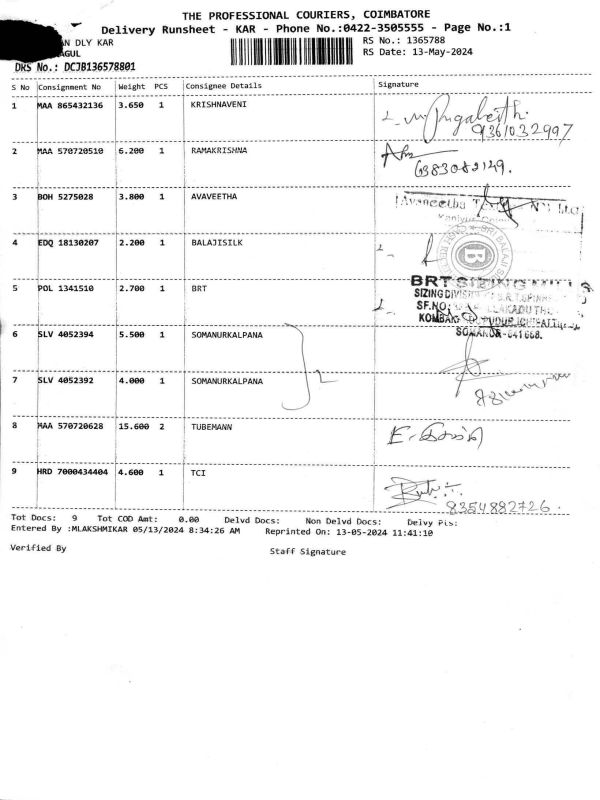 THE PROFESSIONAL COURIERS, COIMBATORE
Delivery Runsheet - KAR - Phone No.:0422-3505555 - Page No.:1
AN DLY KAR RS No.: 1365788
AGUL RS Date: 13-May-2024
DRS No.: DCJB136578801
S No Consignment No Weight PCS Consignee Details Signature
1 MAA 865432136 3.650 1 KRISHNAVENI
9361032997
2 MAA 570720510 6.200 1 RAMAKRISHNA
6383082149.
3 BOH 5275028 3.800 1 AVAVEETHA
4 EDQ 18130207 2.200 1 BALAJISILK
SRI BALAJI
B
5 POL 1341510 2.700 1 BRT
BRT SIZING
SIZING DIVISI
SF.NO:
SOMANUR-641668.
6 SLV 4052394 5.500 1 SOMANURKALPANA
2
7 SLV 4052392 4.000 1 SOMANURKALPANA
8 MAA 570720628 15.600 2 TUBEMANN
9 HRD 7000434404 4.600 1 TCI
9354882726.
Tot Docs: 9 Tot COD Amt: 0.00 Delvd Docs: Non Delvd Docs: Delvy Pis:
Entered By :MLAKSHMIKAR 05/13/2024 8:34:26 AM Reprinted On: 13-05-2024 11:41:10
Verified By Staff Signature